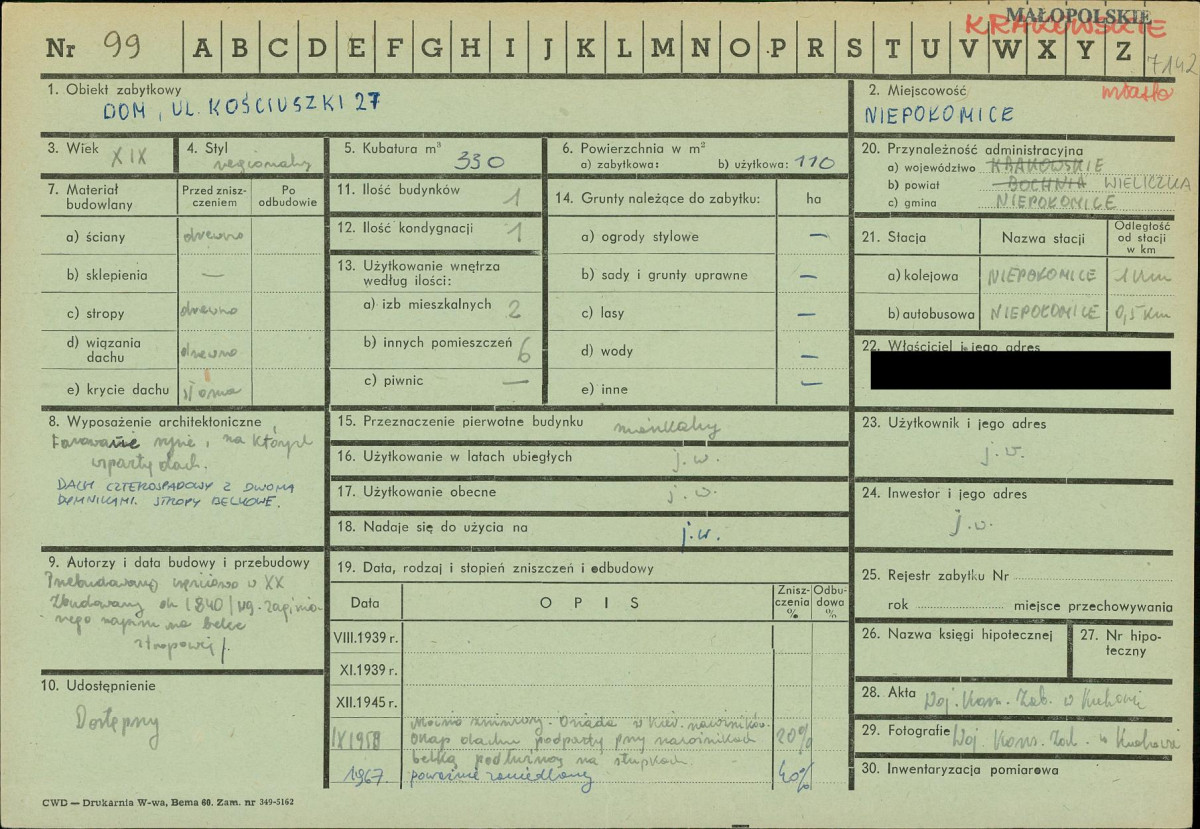 MAŁOPOLSKIE
KRAKOWSKIE
Nr 99 A B C D E F G H I J K L M N O P R S T U V W X Y Z
7142
1. Obiekt zabytkowy
DOM, UL. KOŚCIUSZKI 27
2. Miejscowość miasto
NIEPOŁOMICE
3. Wiek XIX
4. Styl regionalny
5. Kubatura m³ 330
6. Powierzchnia w m²
a) zabytkowa: b) użytkowa: 110
20. Przynależność administracyjna
a) województwo KRAKOWSKIE
b) powiat BOCHNIA WIELICZKA
c) gmina NIEPOŁOMICE
7. Materiał budowlany
Przed zniszczeniem
Po odbudowie
a) ściany drewno
b) sklepienia —
c) stropy drewno
d) wiązania dachu drewno
e) krycie dachu słoma
11. Ilość budynków 1
12. Ilość kondygnacji 1
13. Użytkowanie wnętrza według ilości:
a) izb mieszkalnych 2
b) innych pomieszczeń 6
c) piwnic —
14. Grunty należące do zabytku: ha
a) ogrody stylowe —
b) sady i grunty uprawne —
c) lasy —
d) wody —
e) inne —
21. Stacja
Nazwa stacji
Odległość od stacji w km
a) kolejowa NIEPOŁOMICE 1 km
b) autobusowa NIEPOŁOMICE 0,5 km
22. Właściciel i jego adres
8. Wyposażenie architektoniczne
na których
wsparty dach.
DACH CZTEROSPADOWY Z DWOMA
DYMNIKAMI. STROPY BELKOWE.
15. Przeznaczenie pierwotne budynku mieszkalny
16. Użytkowanie w latach ubiegłych j.w.
17. Użytkowanie obecne j.w.
18. Nadaje się do użycia na j.w.
23. Użytkownik i jego adres
j.w.
24. Inwestor i jego adres
j.w.
9. Autorzy i data budowy i przebudowy
Przebudowany częściowo w XX
Zbudowany ok 1840 /wg. zaginio-
nego napisu na belce
stropowej/.
19. Data, rodzaj i stopień zniszczeń i odbudowy
Data
OPIS
Zniszczenia %
Odbudowa %
VIII.1939 r.
XI.1939 r.
XII.1945 r.
IX 1958
Mocno zniszczony. Osiada w kier. narożników.
Okap dachu podparty przy narożnikach
belką podłużną na słupkach. 20%
1967 poważnie zaniedbany 40%
25. Rejestr zabytku Nr
rok miejsce przechowywania
26. Nazwa księgi hipotecznej
27. Nr hipoteczny
10. Udostępnienie
Dostępny
28. Akta Woj. Kons. Zab. w Krakowie
29. Fotografie Woj. Kons. Zab. w Krakowie
30. Inwentaryzacja pomiarowa
CWD — Drukarnia W-wa, Bema 60. Zam. nr 349-5162